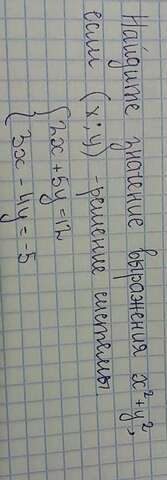 Найдите значение выражения x²+y²,
если (x;y) - решение системы
{2x + 5y = 12
3x - 4y = -5